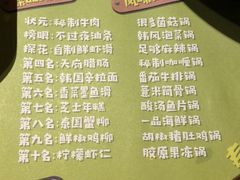 状元：秘制牛肉
榜眼：不过海油条
探花：自制鲜虾滑
第四名：天府腊肠
第五名：韩国辛拉面
第六名：香菜墨鱼滑
第七名：芝士年糕
第八名：泰国蟹柳
第九名：鲜椒鸡柳
第十名：柠檬虾仁
很多菌菇锅
韩风泡菜锅
足够麻辣锅
秘制咖喱锅
番茄牛排锅
薏米筒骨锅
酸汤鱼片锅
一品海鲜锅
胡椒猪肚鸡锅
胶原果冻锅